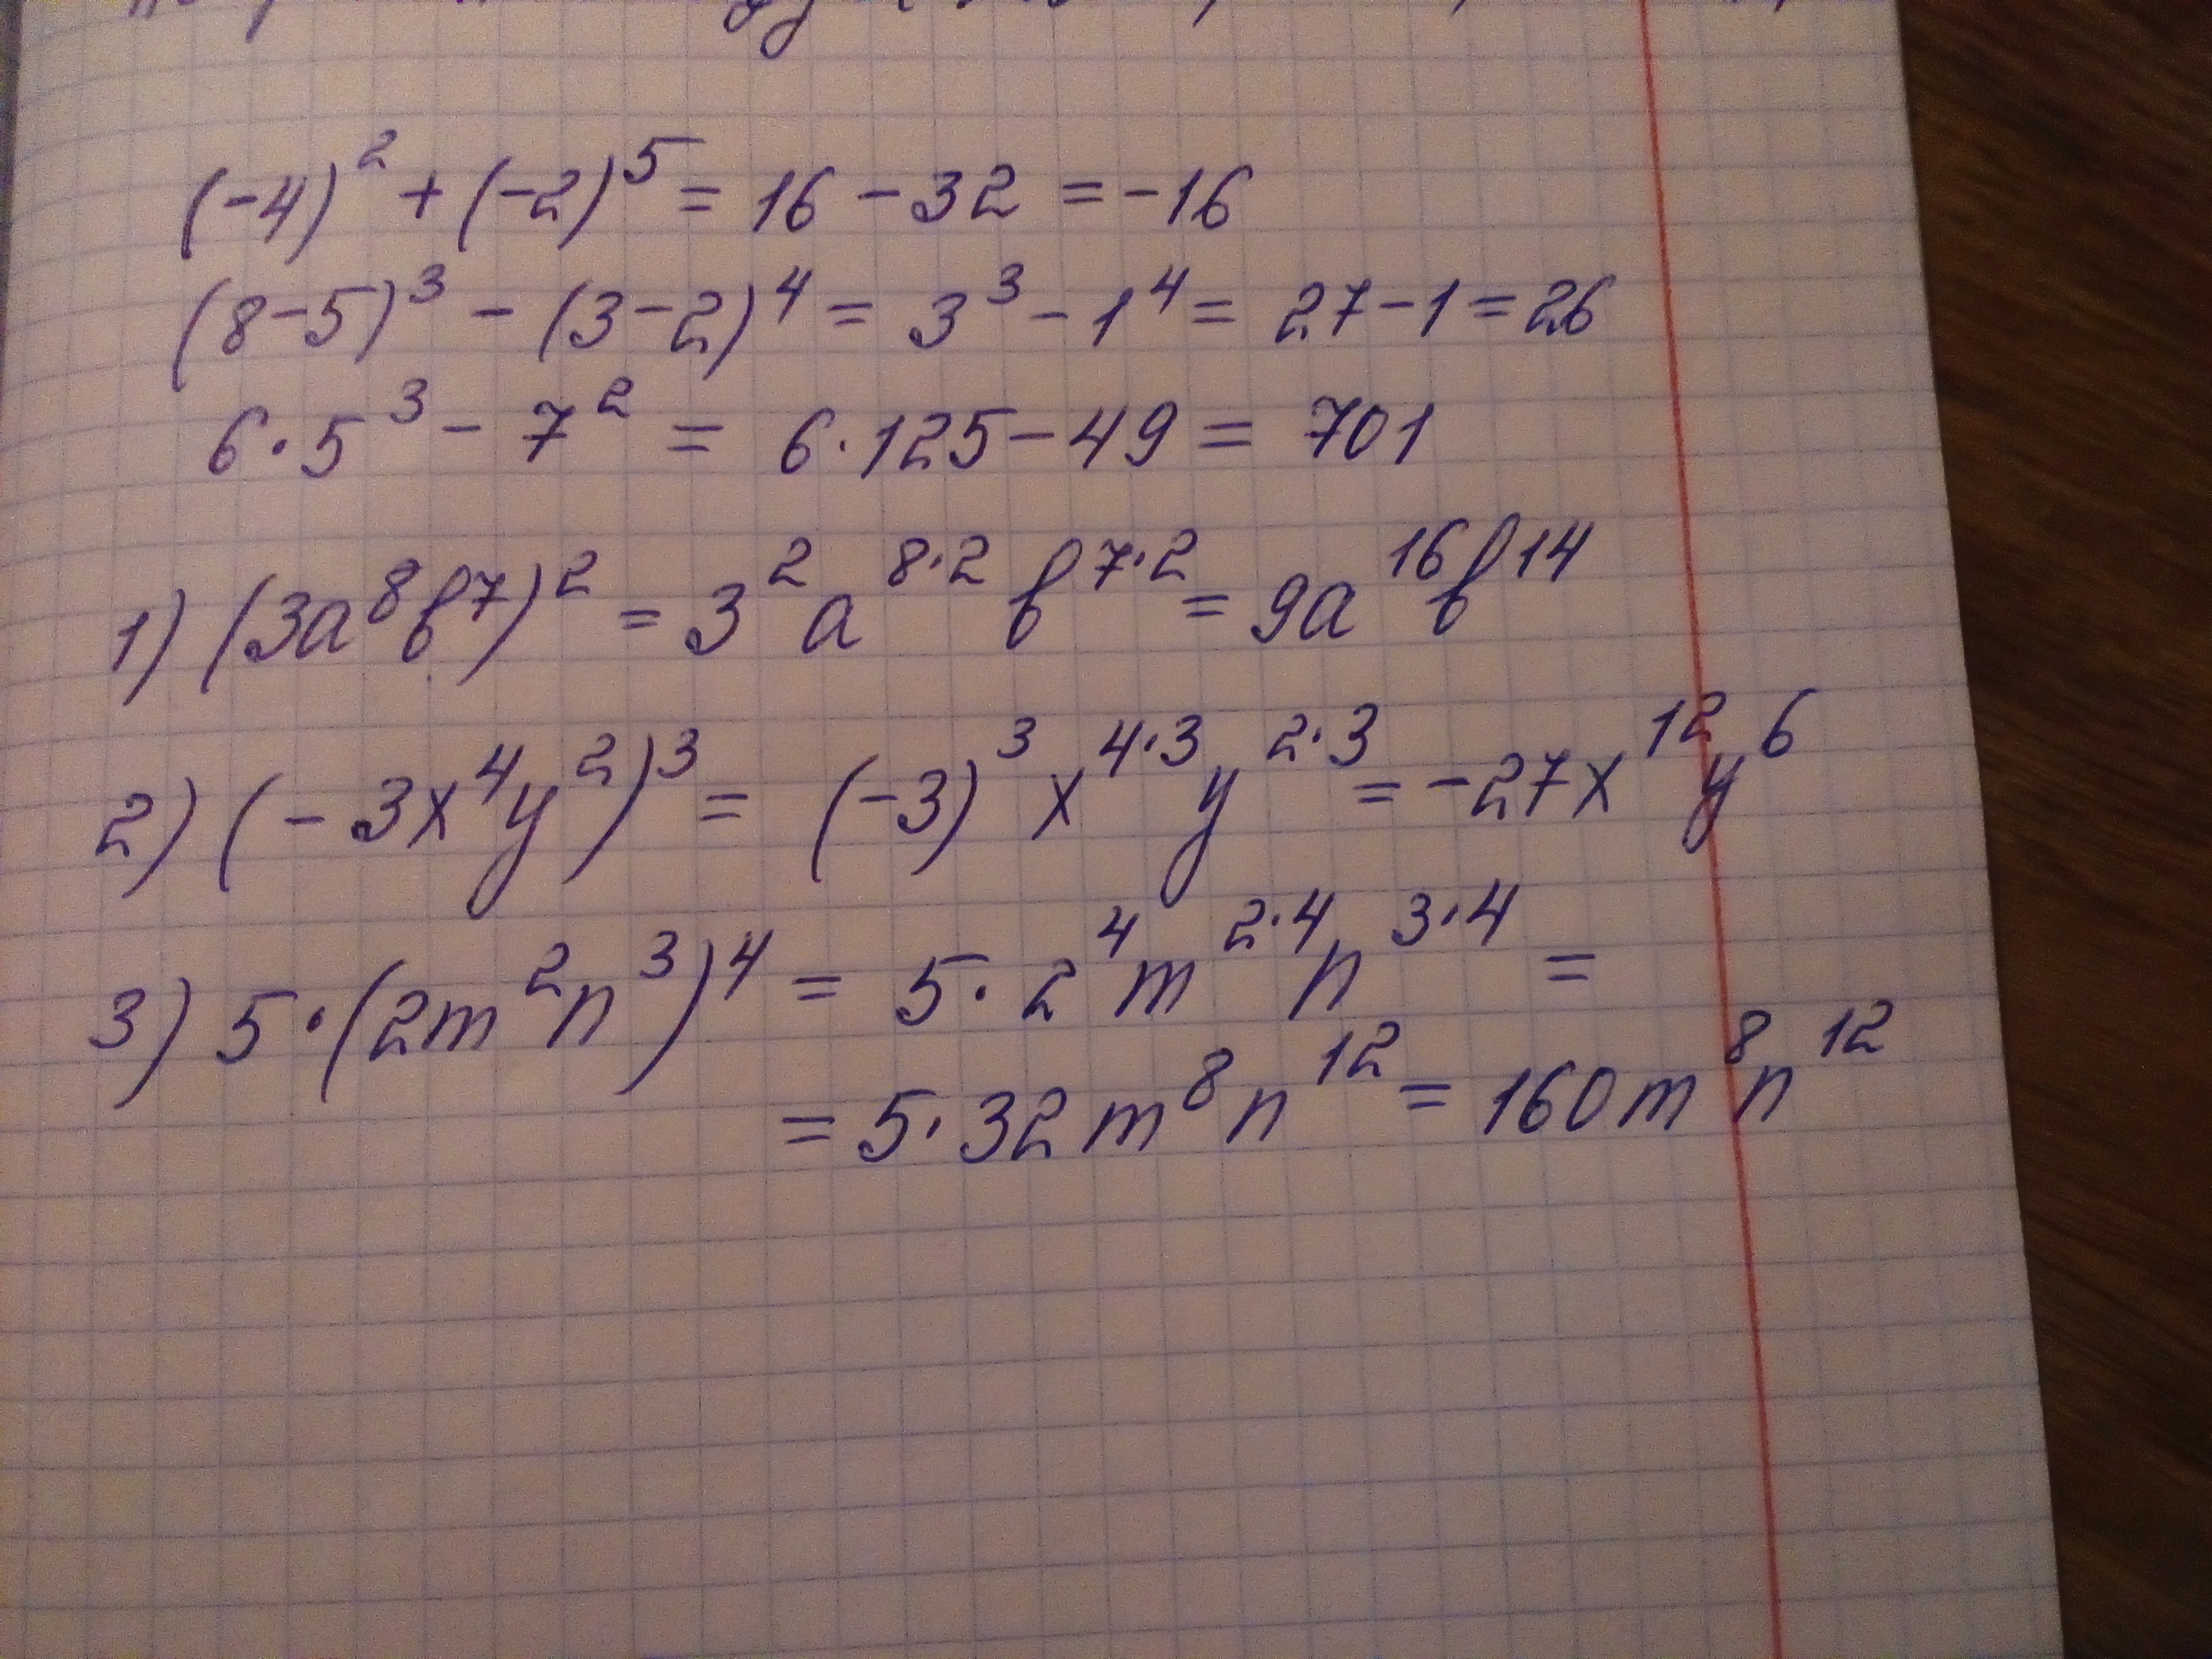 (-4)² + (-2)⁵ = 16 - 32 = -16
(8-5)³ - (3-2)⁴ = 3³ - 1⁴ = 27 - 1 = 26
6·5³ - 7² = 6·125 - 49 = 701
1) (3a⁸b⁷)² = 3²a⁸·²b⁷·² = 9a¹⁶b¹⁴
2) (-3x⁴y²)³ = (-3)³x⁴·³y²·³ = -27x¹²y⁶
3) 5·(2m²n³)⁴ = 5·2⁴m²·⁴n³·⁴ =
= 5·32m⁸n¹² = 160m⁸n¹²